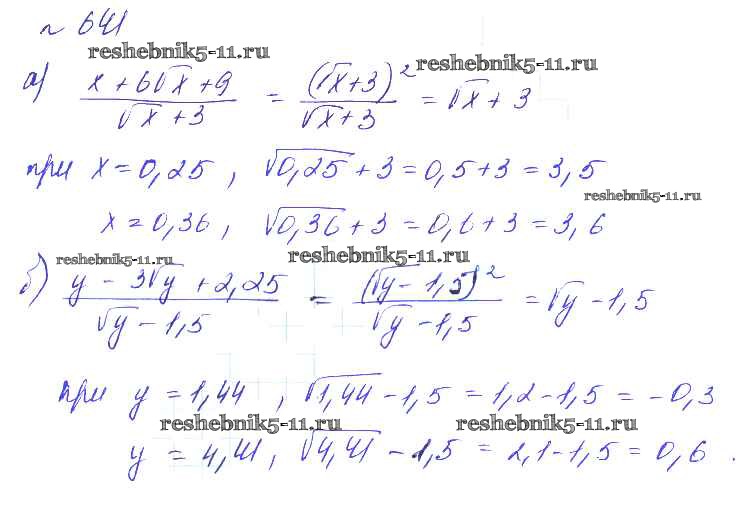 № 641
reshebnik5-11.ru reshebnik5-11.ru
а) (x + 6√x + 9)/(√x + 3) = (√x + 3)²/(√x + 3) = √x + 3
при x = 0,25 , √0,25 + 3 = 0,5 + 3 = 3,5
reshebnik5-11.ru
x = 0,36 , √0,36 + 3 = 0,6 + 3 = 3,6
reshebnik5-11.ru reshebnik5-11.ru
б) (y - 3√y + 2,25)/(√y - 1,5) = (√y - 1,5)²/(√y - 1,5) = √y - 1,5
при y = 1,44 , √1,44 - 1,5 = 1,2 - 1,5 = -0,3
reshebnik5-11.ru reshebnik5-11.ru
y = 4,41 , √4,41 - 1,5 = 2,1 - 1,5 = 0,6 .